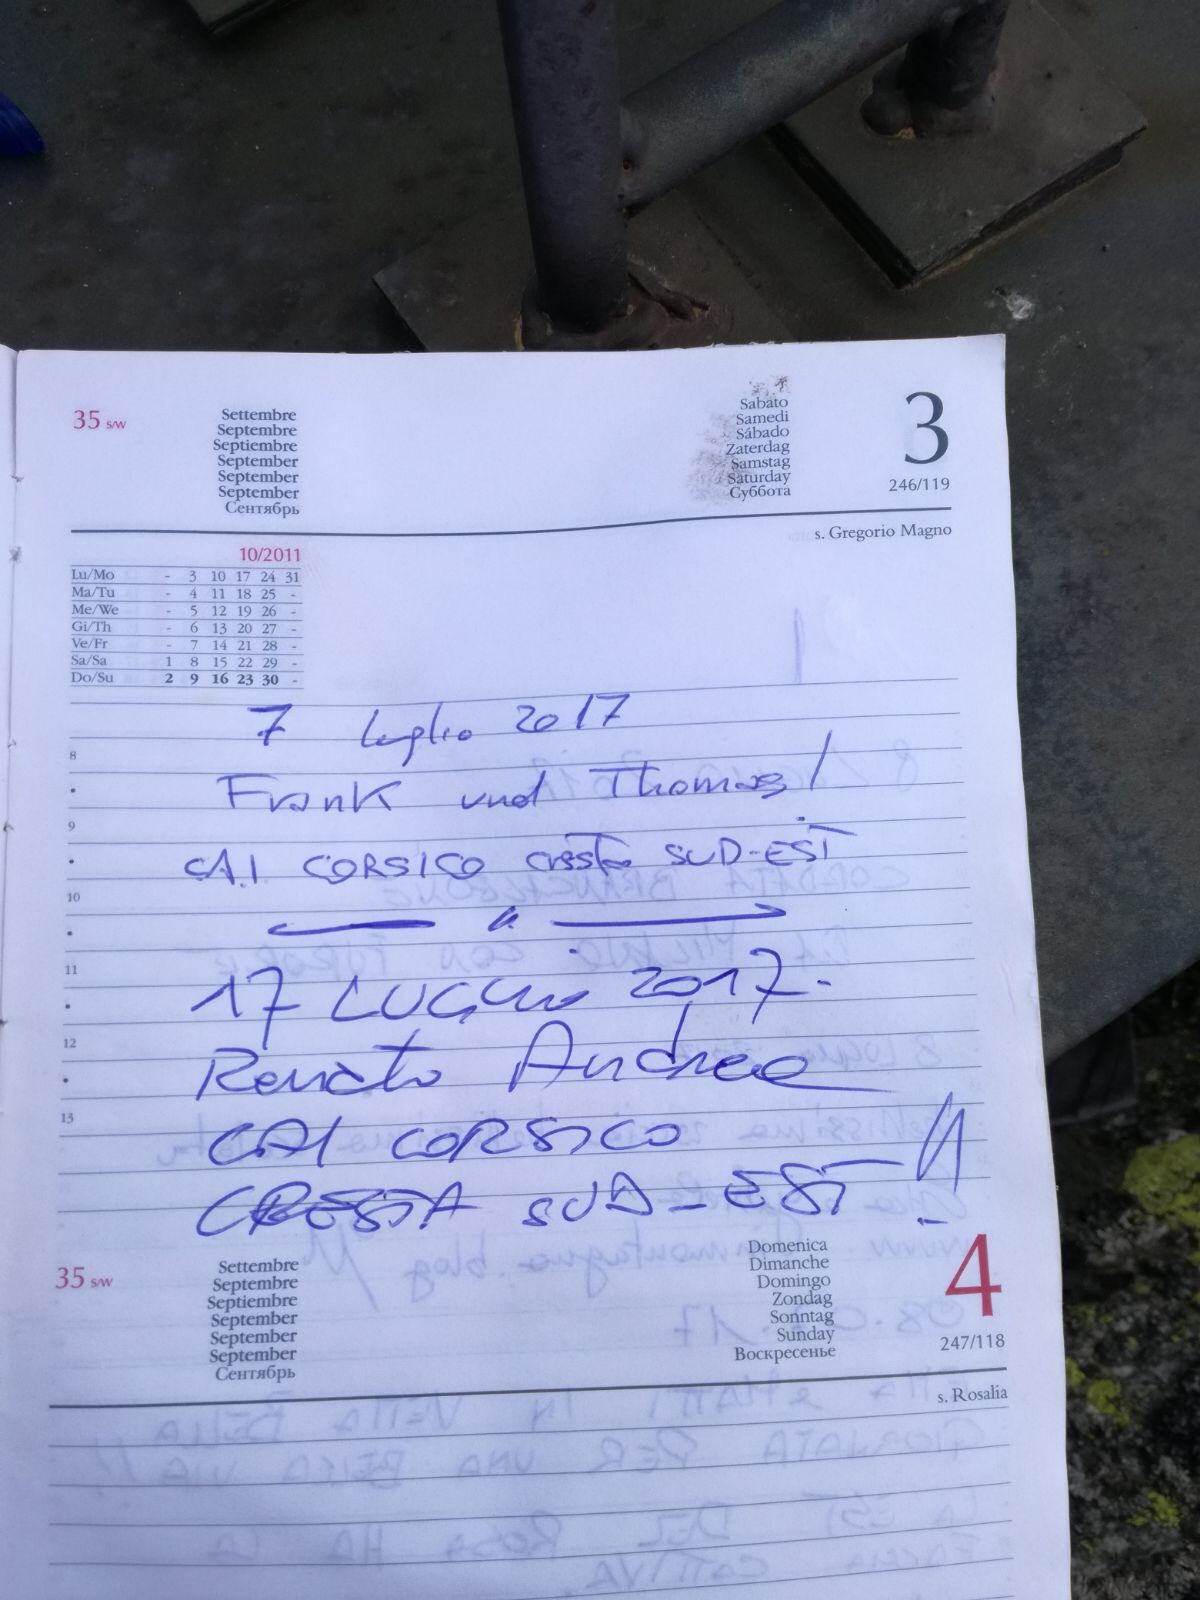 35 s/w
Settembre
Septembre
Septiembre
September
September
September
Сентябрь
Sabato
Samedi
Sábado
Zaterdag
Samstag
Saturday
Суббота
3
246/119
s. Gregorio Magno
10/2011
Lu/Mo - 3 10 17 24 31
Ma/Tu - 4 11 18 25 -
Me/We - 5 12 19 26 -
Gi/Th - 6 13 20 27 -
Ve/Fr - 7 14 21 28 -
Sa/Sa 1 8 15 22 29 -
Do/Su 2 9 16 23 30 -
7 luglio 2017
8
Frank und Thomas /
9
CA.I CORSICO cresta SUD-EST
10
11
17 LUGLIO 2017.
12
Renato Andrea
13
CAI CORSICO
CRESTA SUD-EST !!
35 s/w
Settembre
Septembre
Septiembre
September
September
September
Сентябрь
Domenica
Dimanche
Domingo
Zondag
Sonntag
Sunday
Воскресенье
4
247/118
s. Rosalia